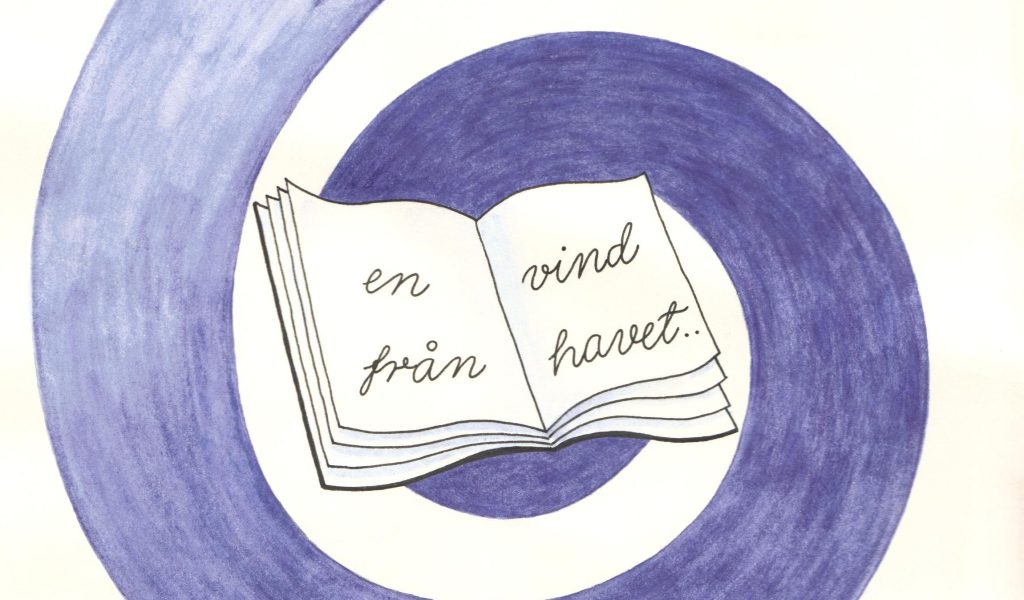 en vind
från havet..